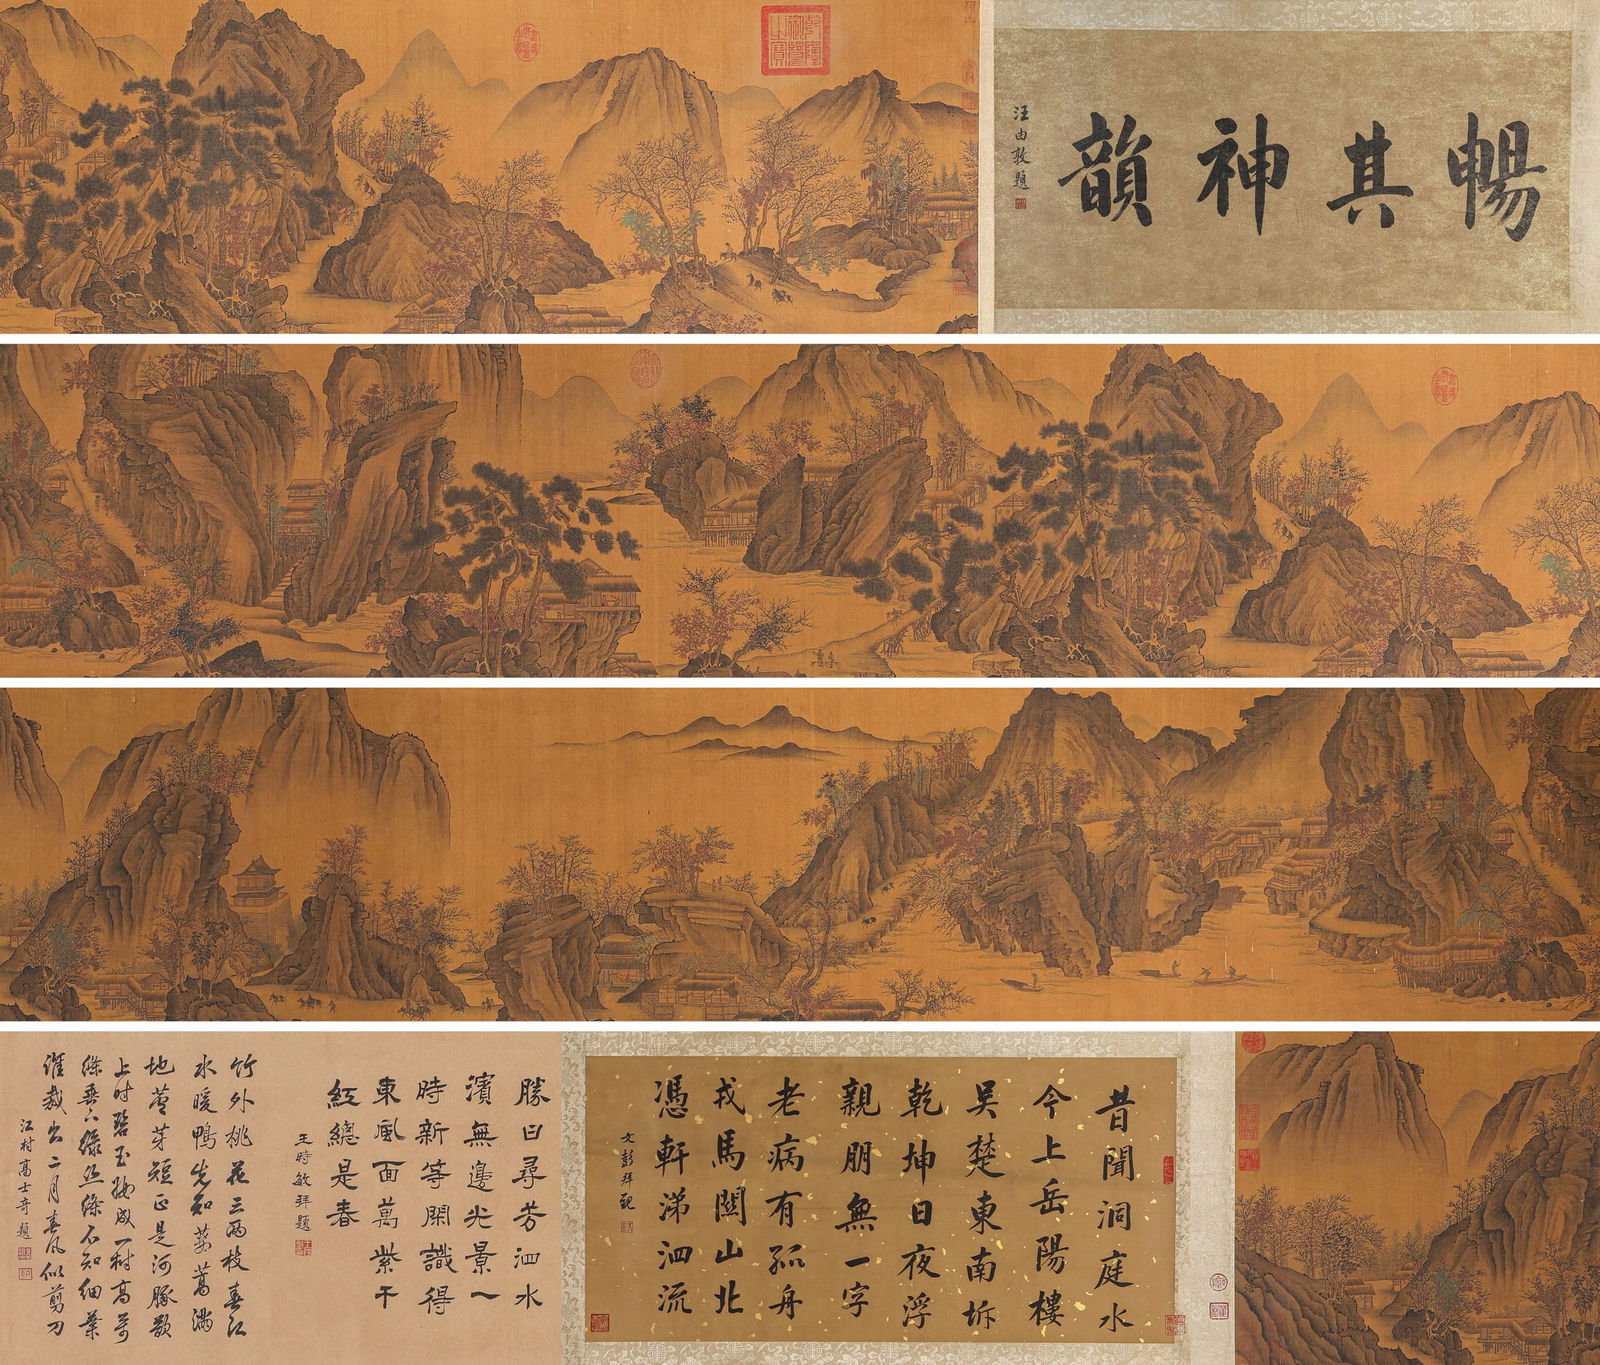 暢其神韻
汪由敦題
乾隆御覽之寶
昔聞洞庭水
今上岳陽樓
吳楚東南坼
乾坤日夜浮
親朋無一字
老病有孤舟
戎馬關山北
憑軒涕泗流
文彭拜觀
勝日尋芳泗水
濱無邊光景一
時新等閑識得
東風面萬紫千
紅總是春
王時敏拜題
竹外桃花三兩枝春江
水暖鴨先知蔞蒿滿
地蘆芽短正是河豚欲
上时碧玉妝成一樹高萬
條垂下綠絲絛不知細葉
誰裁出二月春風似剪刀
江村高士奇題